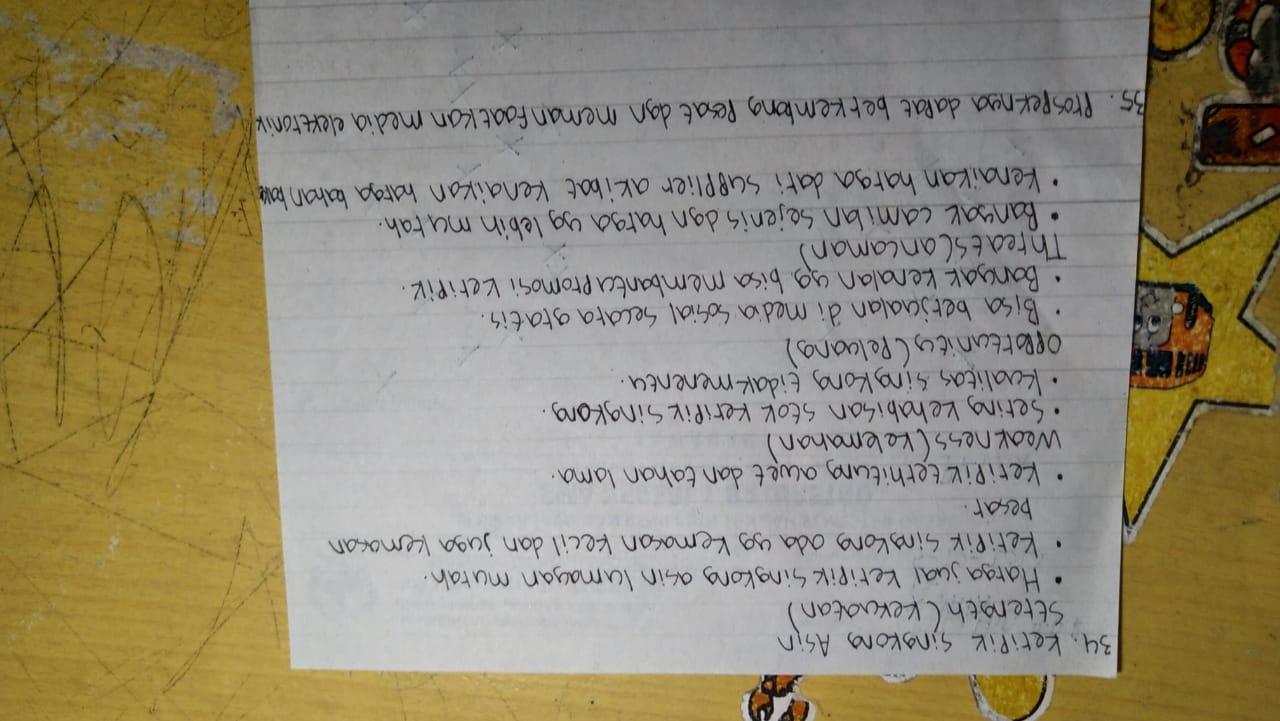 34. Keripik singkong Asin
Strength (kekuatan)
• Harga jual keripik singkong asin lumayan murah.
• Keripik singkong ada yg kemasan kecil dan juga kemasan
besar.
• Keripik terhitung awet dan tahan lama.
Weakness (kelemahan)
• Sering kehabisan stok keripik singkong.
• Kualitas singkong tidak menentu.
Opportunity (Peluang)
• Bisa berjualan di media sosial secara gratis.
• Banyak kenalan yg bisa membantu promosi keripik.
Threats (ancaman)
• Banyak camilan sejenis dgn harga yg lebih murah.
• Kenaikan harga dari supplier akibat kenaikan harga bahan baku
35. Prospeknya dapat berkembang pesat dgn memanfaatkan media elektronik